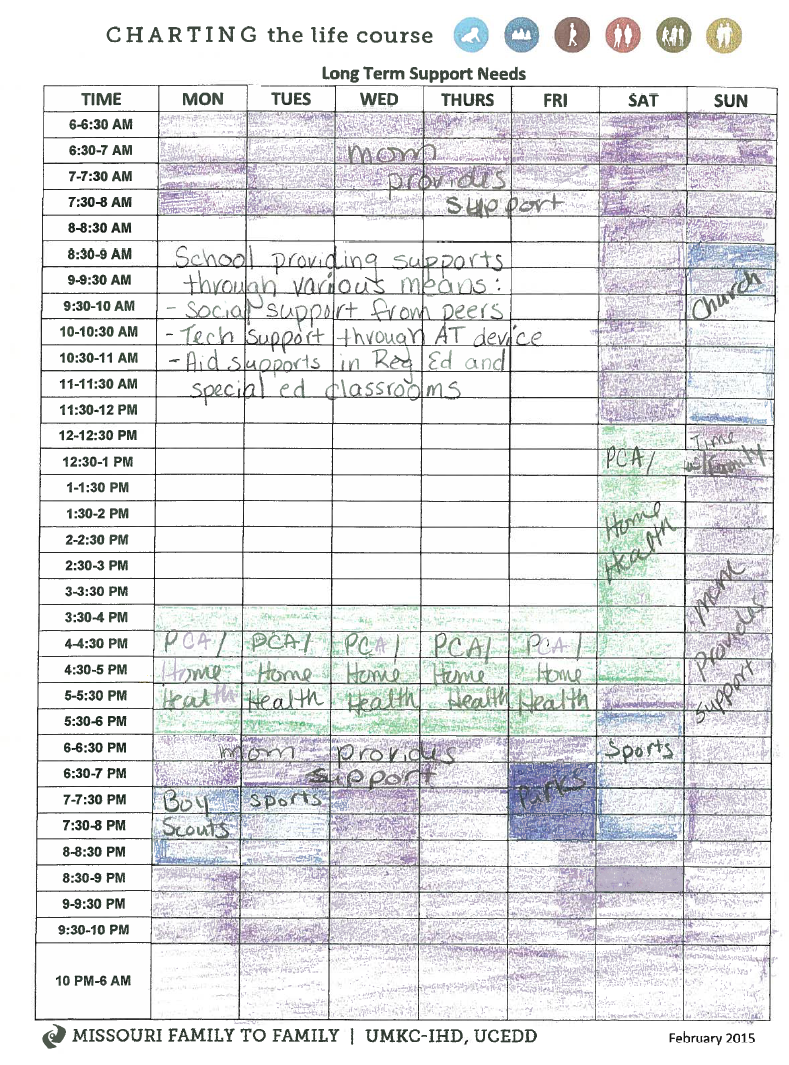 CHARTING the life course
Long Term Support Needs
TIME MON TUES WED THURS FRI SAT SUN
6-6:30 AM
6:30-7 AM mom
7-7:30 AM provides
7:30-8 AM support
8-8:30 AM
8:30-9 AM School providing supports
9-9:30 AM through various means: Church
9:30-10 AM - Social support from peers
10-10:30 AM - Tech support through AT device
10:30-11 AM - Aid supports in Reg Ed and
11-11:30 AM special ed classrooms
11:30-12 PM
12-12:30 PM Time
12:30-1 PM PCA/ w/family
1-1:30 PM
1:30-2 PM Home
2-2:30 PM Health
2:30-3 PM
3-3:30 PM mom
3:30-4 PM
4-4:30 PM PCA/ PCA/ PCA/ PCA/ PCA/ provides
4:30-5 PM Home Home Home Home Home
5-5:30 PM Health Health Health Health Health support
5:30-6 PM
6-6:30 PM mom provides Sports
6:30-7 PM support
7-7:30 PM Boy Sports Parks
7:30-8 PM Scouts
8-8:30 PM
8:30-9 PM
9-9:30 PM
9:30-10 PM
10 PM-6 AM
MISSOURI FAMILY TO FAMILY | UMKC-IHD, UCEDD February 2015